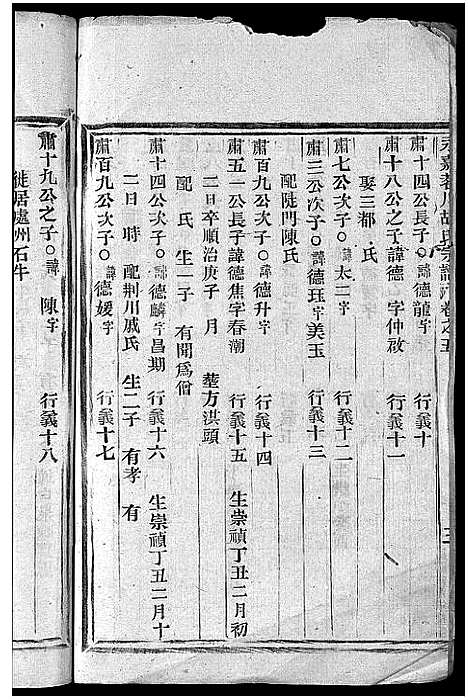 永嘉 川胡氏宗譜 卷之五
肅十四公長子○諱德龍字 行義十
肅十八公之子諱德 字仲啟 行義十一
娶三都 氏
肅七公次子○諱 太二字 行義十二
肅三公次子○諱德珏字美玉 行義十三
配陡門陳氏
肅九公次子○諱德升字 行義十四
肅五一公長子諱德焦字春潮 行義十五 生崇禎丁丑二月初
二日卒順治庚子 月 塟方洪頭
配 氏 生一子 有開爲僧
肅十四公次子○諱德麟字昌期 行義十六 生崇禎丁丑二月十
二日時 配荆川戚氏 生二子 有孝 有
肅百九公次子○諱德媛字 行義十七
肅十九公之子○諱 陳字 行義十八
徙居處州石牛
三